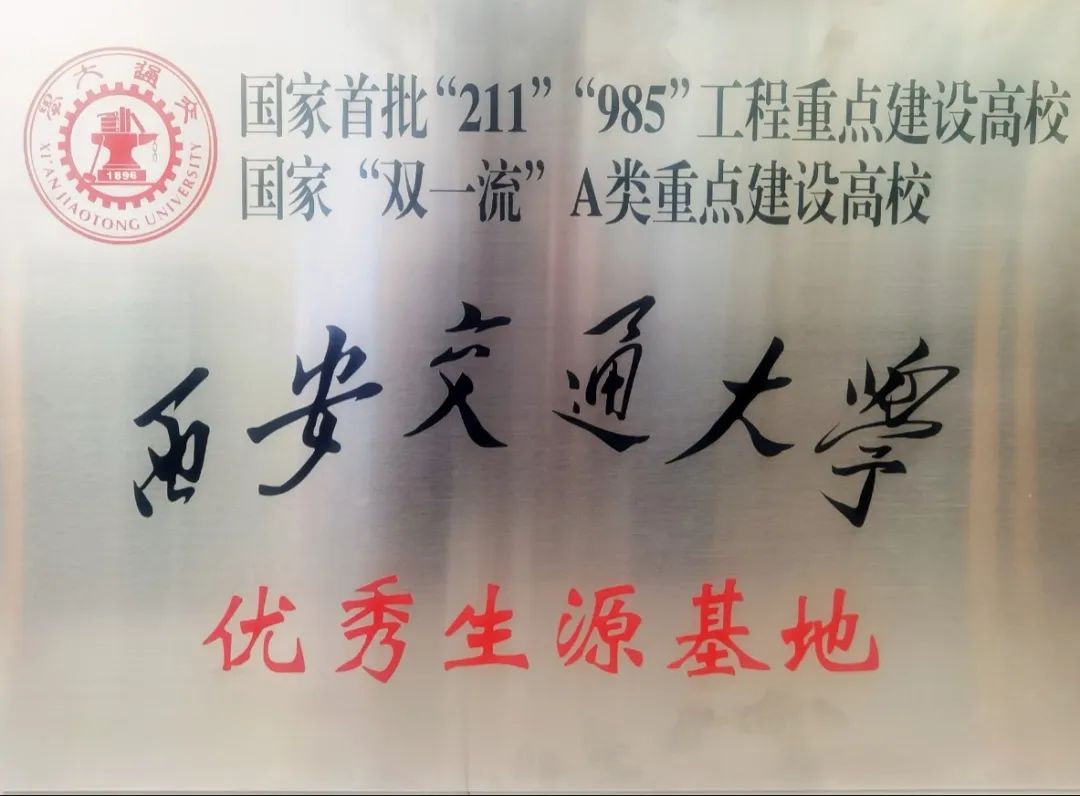 學大通交
1896
XI'AN JIAOTONG UNIVERSITY
国家首批“211”“985”工程重点建设高校
国家“双一流”A类重点建设高校
西安交通大学
优秀生源基地